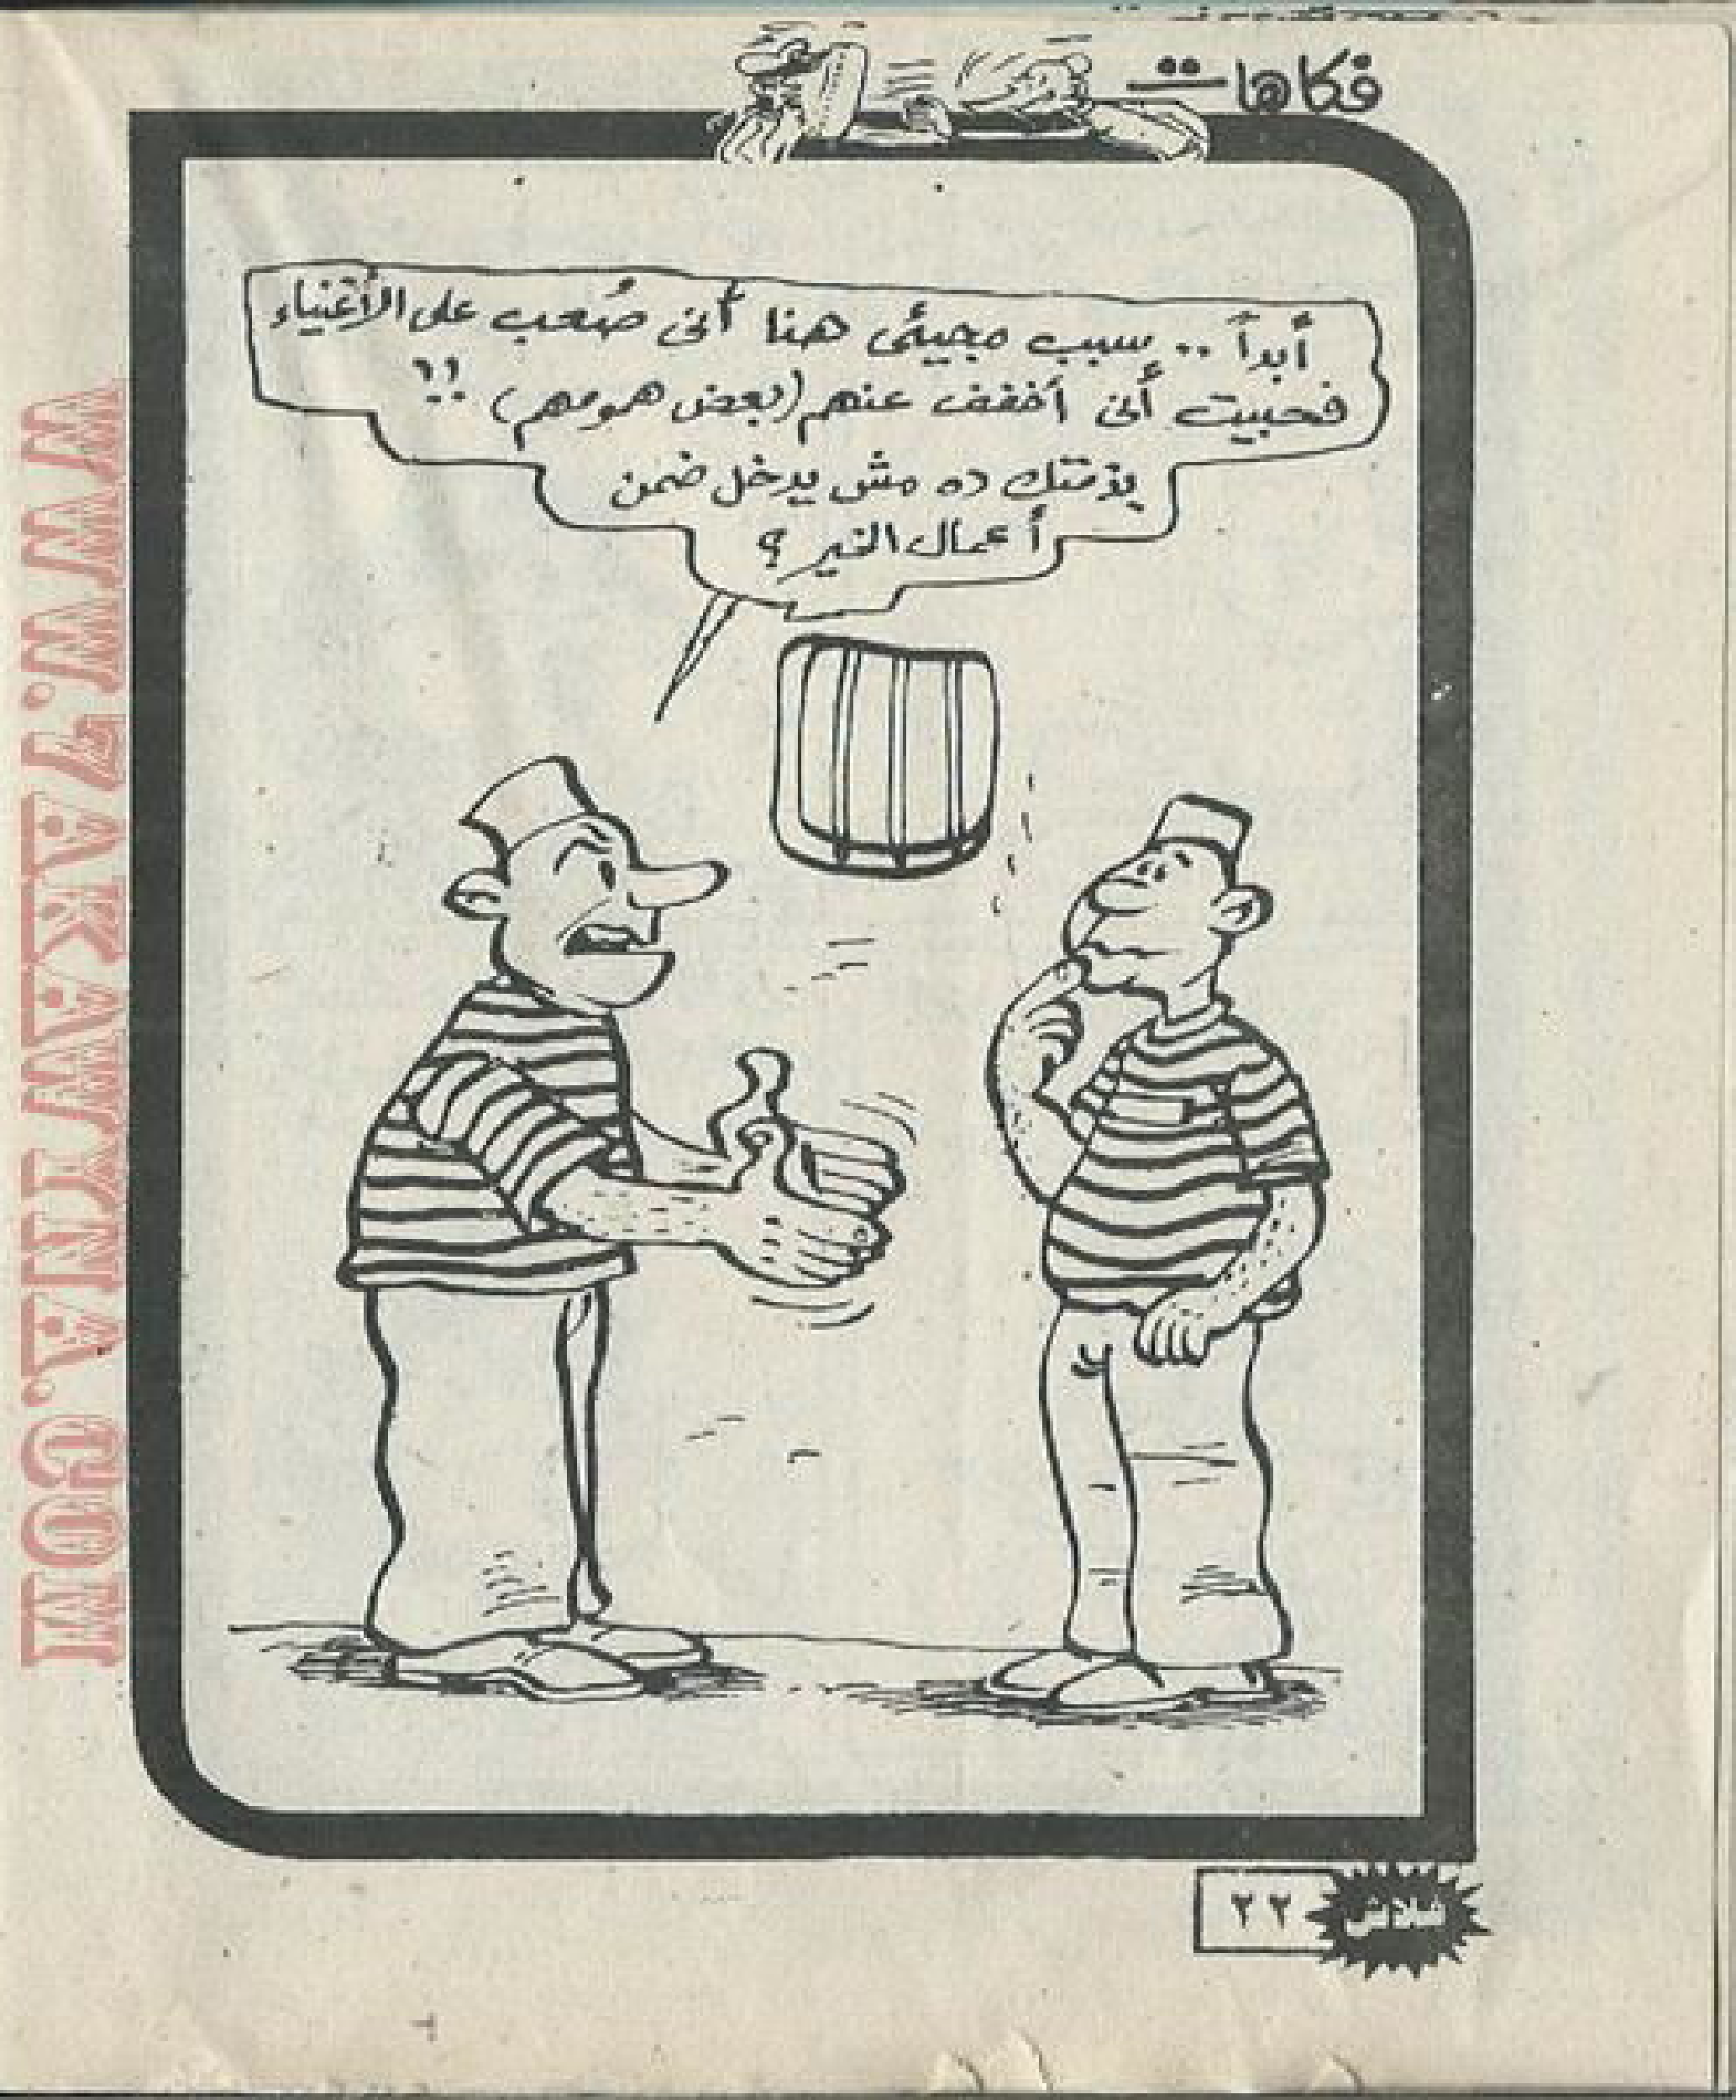 فكاهات
أبداً .. سبب مجيئى هنا أنى صُعب على الأغنياء
فحبيت أنى أخفف عنهم (بعض همومهم) !!
بذمتك ده مش يدخل ضمن
أعمال الخير ؟
فلاش ٢٢
WWW.LAKAMTNA.COM